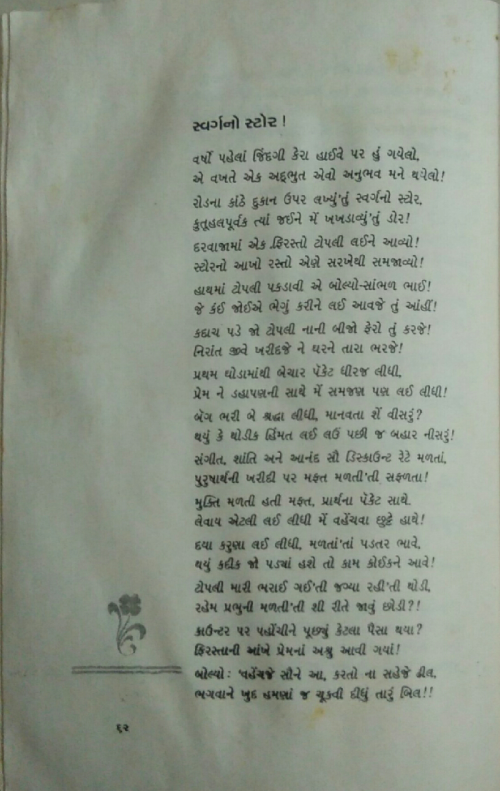 સ્વર્ગનો સ્ટોર !
વર્ષો પહેલાં જિંદગી કેરા હાઈવે પર હું ગયેલો,
એ વખતે એક અદ્ભુત એવો અનુભવ મને થયેલો!
રોડના કાંઠે દુકાન ઉપર લખ્યું'તું સ્વર્ગનો સ્ટોર,
કુતૂહલપૂર્વક ત્યાં જઈને મેં ખખડાવ્યું'તું ડોર!
દરવાજામાં એક ફિરસ્તો ટોપલી લઈને આવ્યો!
સ્ટોરનો આખો રસ્તો એણે સરખેથી સમજાવ્યો!
હાથમાં ટોપલી પકડાવી એ બોલ્યો-સાંભળ ભાઈ!
જે કંઈ જોઈએ ભેગું કરીને લઈ આવજે તું આંહીં!
કદાચ પડે જો ટોપલી નાની બીજો ફેરો તું કરજે!
નિરાંત જીવે ખરીદજે ને ઘરને તારા ભરજે!
પ્રથમ થોડામાંથી બેચાર પેકેટ ધીરજ લીધી,
પ્રેમ ને ડહાપણની સાથે મેં સમજણ પણ લઈ લીધી!
બેગ ભરી બે શ્રદ્ધા લીધી, માનવતા શેં વીસરું?
થયું કે થોડીક હિંમત લઈ લઉં પછી જ બહાર નીસરું!
સંગીત, શાંતિ અને આનંદ સૌ ડિસ્કાઉન્ટ રેટે મળતાં,
પુરુષાર્થની ખરીદી પર મફત મળતી'તી સફળતા!
મુક્તિ મળતી હતી મફત, પ્રાર્થના પેકેટ સાથે.
લેવાય એટલી લઈ લીધી મેં વહેંચવા છુટ્ટે હાથે!
દયા કરુણા લઈ લીધી, મળતાં'તાં પડતર ભાવે,
થયું કદીક જો પડ્યાં હશે તો કામ કોઈકને આવે!
ટોપલી મારી ભરાઈ ગઈ'તી જગ્યા રહી'તી થોડી,
રહેમ પ્રભુની મળતી'તી શી રીતે જાવું છોડી?!
કાઉન્ટર પર પહોંચીને પૂછ્યું કેટલા પૈસા થયા?
ફિરસ્તાની આંખે પ્રેમનાં અશ્રુ આવી ગયાં!
બોલ્યો : 'વહેંચજે સૌને આ, કરતો ના સહેજે ઢીલ,
ભગવાને ખુદ હમણાં જ ચૂકવી દીધું તારું બિલ!!
૬૨